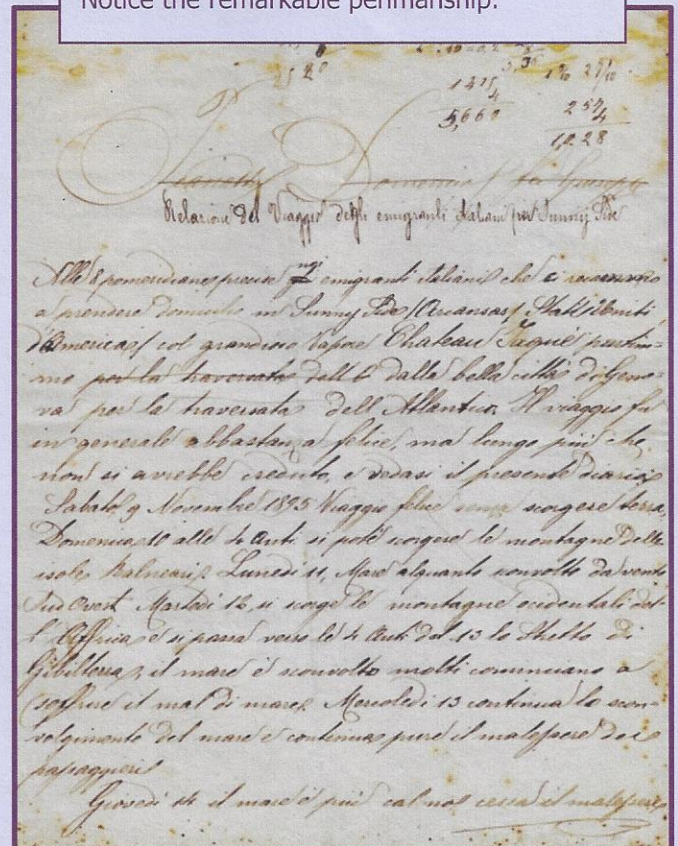 Notice the remarkable penmanship.
1415
4
5,660
257
4
1,028
Domenico
Relazione del Viaggio degli emigranti italiani per Sunny Side
Alle 8 pomeridiane precise noi emigranti italiani che ci recavamo
a prendere domicilio in Sunny Side (Arcansas) Stati Uniti
d'America col grandioso Vapore Chateau Yaquè partim-
mo per la traversata dell' dalla bella città di Geno-
va per la traversata dell'Atlantico. Il viaggio fu
in generale abbastanza felice, ma lungo più che
non si avrebbe creduto, e vedasi il presente diario
Sabato 9 Novembre 1895 Viaggio felice senza scorgere terra,
Domenica 10 alle 4 Anti si potè scorgere le montagne delle
isole Balneari. Lunedì 11, Mare alquanto sconvolto da vento
Sud Ovest Martedì 12, si scorge le montagne occidentali del-
l'Affrica e si passa verso le 4 Anti del 13 lo Stretto di
Gibilterra, il mare è sconvolto molti cominciano a
soffrire il mal di mare. Mercoledì 13 continua lo scon-
volgimento del mare e continua pure il malessere dei
passaggieri
Giovedì 14 il mare è più calmo cessa il malessere